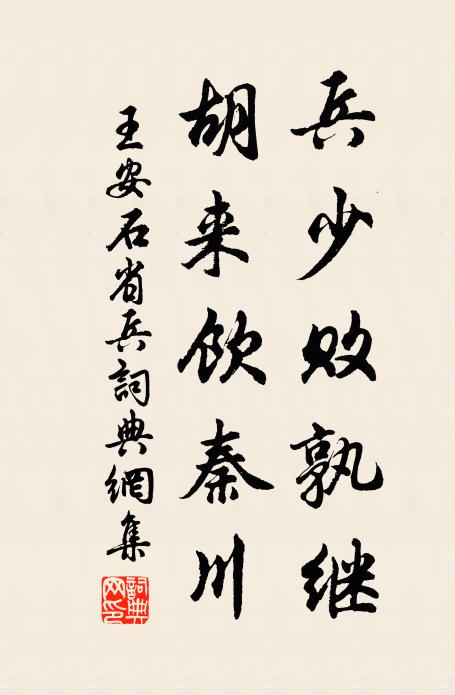 兵少败孰继
胡来饮秦川
王安石省兵詞典網集
詞典網印